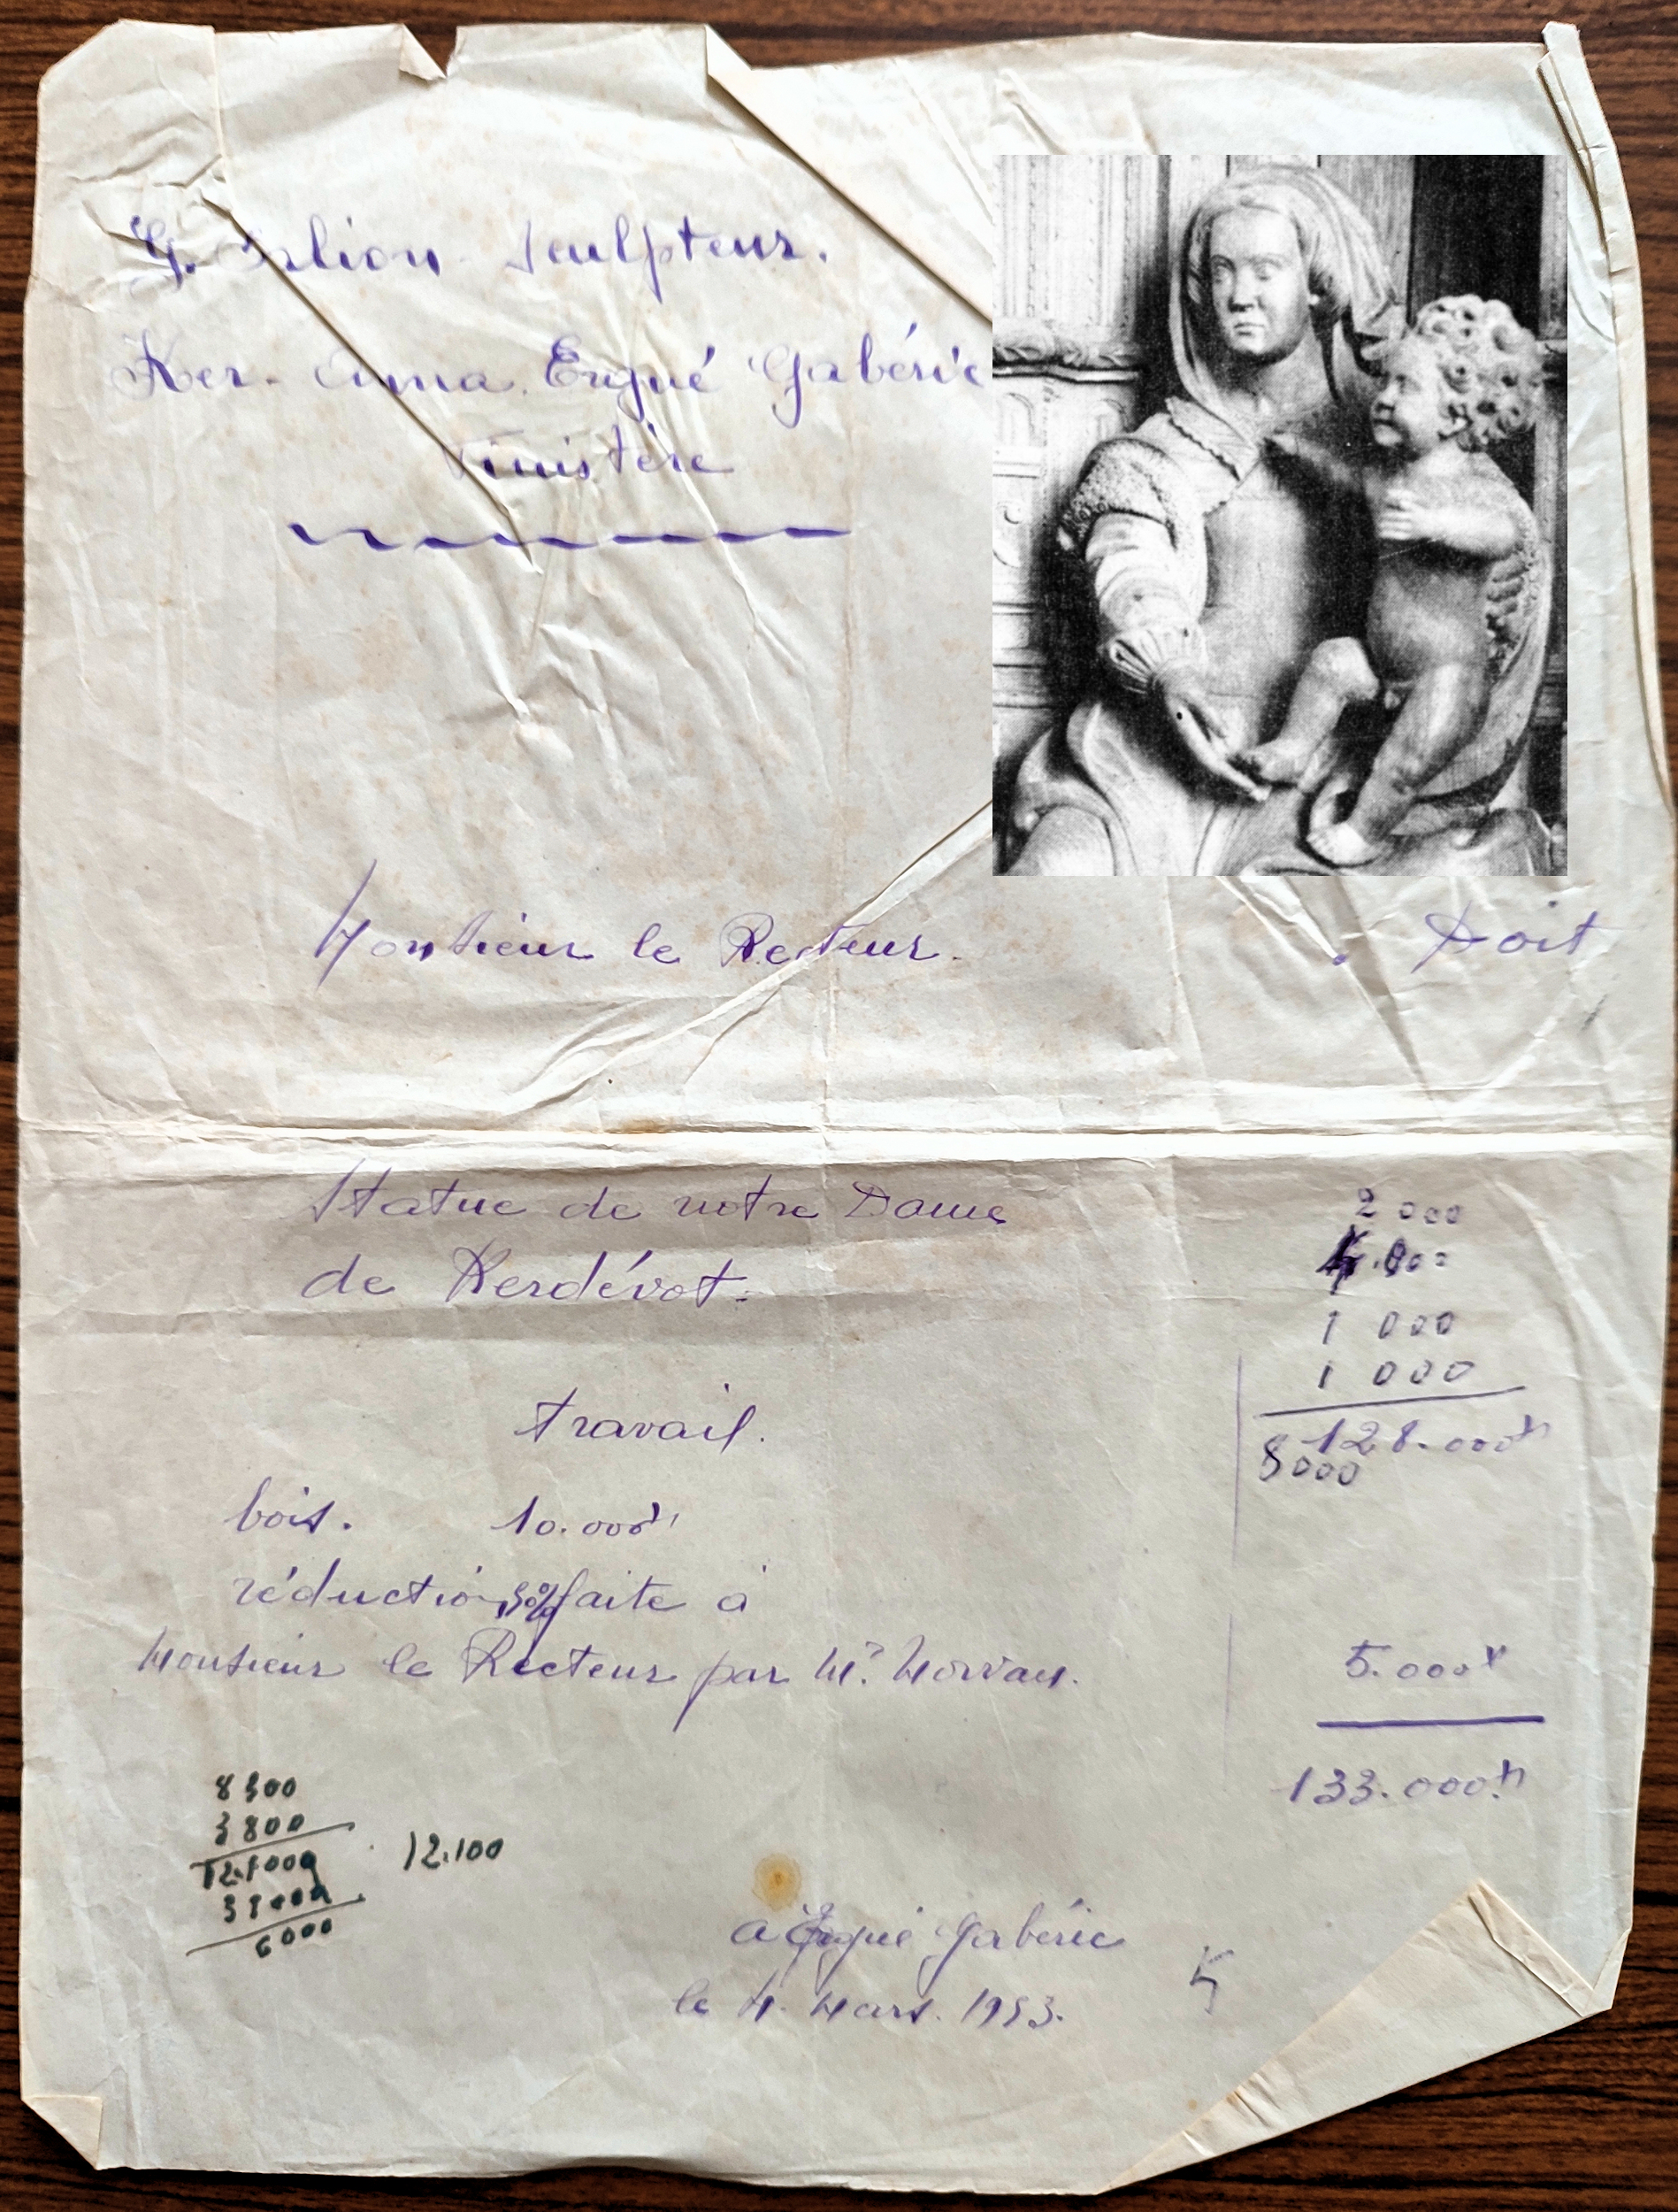 G. Sculpteur.
Ker- Anna. Ergué Gabéric
Finistère
Monsieur le Recteur. . Doit
Statue de notre Dame
de Kerdévot.
2 000
1 000
1 000
travail. 128.000
8000
bois. 10.000
réduction faite à
Monsieur le Recteur par Mr Morvan. 5.000
133.000
8 300
3 800
12.100
6000
a Ergué Gabéric
le 4. Mars. 1953.
5